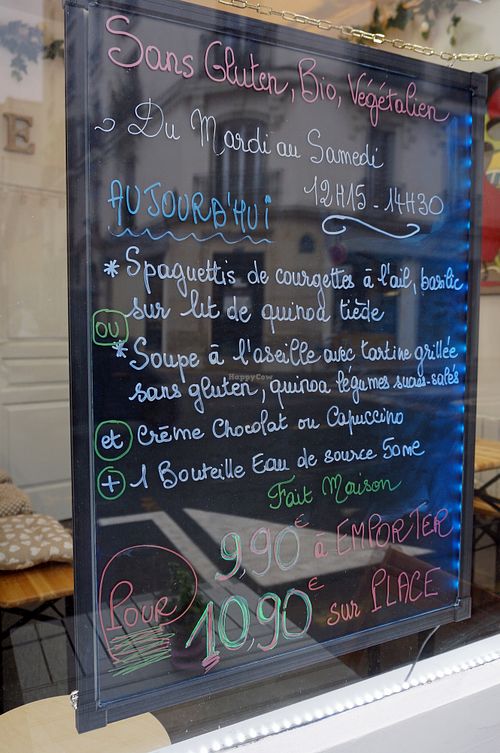 Sans Gluten, Bio, Végétalien
Du Mardi au Samedi
12H15 - 14H30
AUJOURD'HUI
* Spaguettis de courgettes à l'ail, basilic
sur lit de quinoa tiède
ou
* Soupe à l'oseille avec tartine grillée
sans gluten, quinoa légumes sucrés-salés
et Crème Chocolat ou Capuccino
+ 1 Bouteille Eau de source 50ml
Fait Maison
9,90€ à EMPORTER
POUR
10,90€ sur PLACE
E
HappyCow